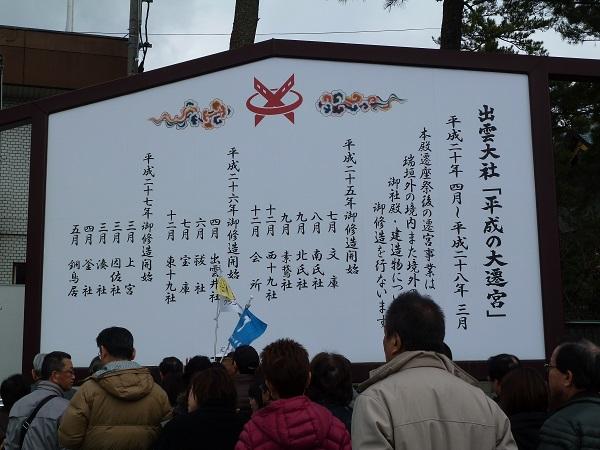 出雲大社「平成の大遷宮」
平成二十年 四月～平成二十八年 三月
本殿遷座祭後の遷宮事業は
瑞垣外の境内また境外
御社殿・建造物につ
御修造を行ないます
平成二十五年御修造開始
七月 文庫
八月 南氏社
九月 北氏社
九月 素鵞社
十二月 西十九社
十二月 会所
平成二十六年御修造開始
四月 出雲井社
六月 祓社
七月 宝庫
十二月 東十九社
平成二十七年御修造開始
三月 上宮
三月 因佐社
三月 湊社
四月 釜社
五月 銅鳥居